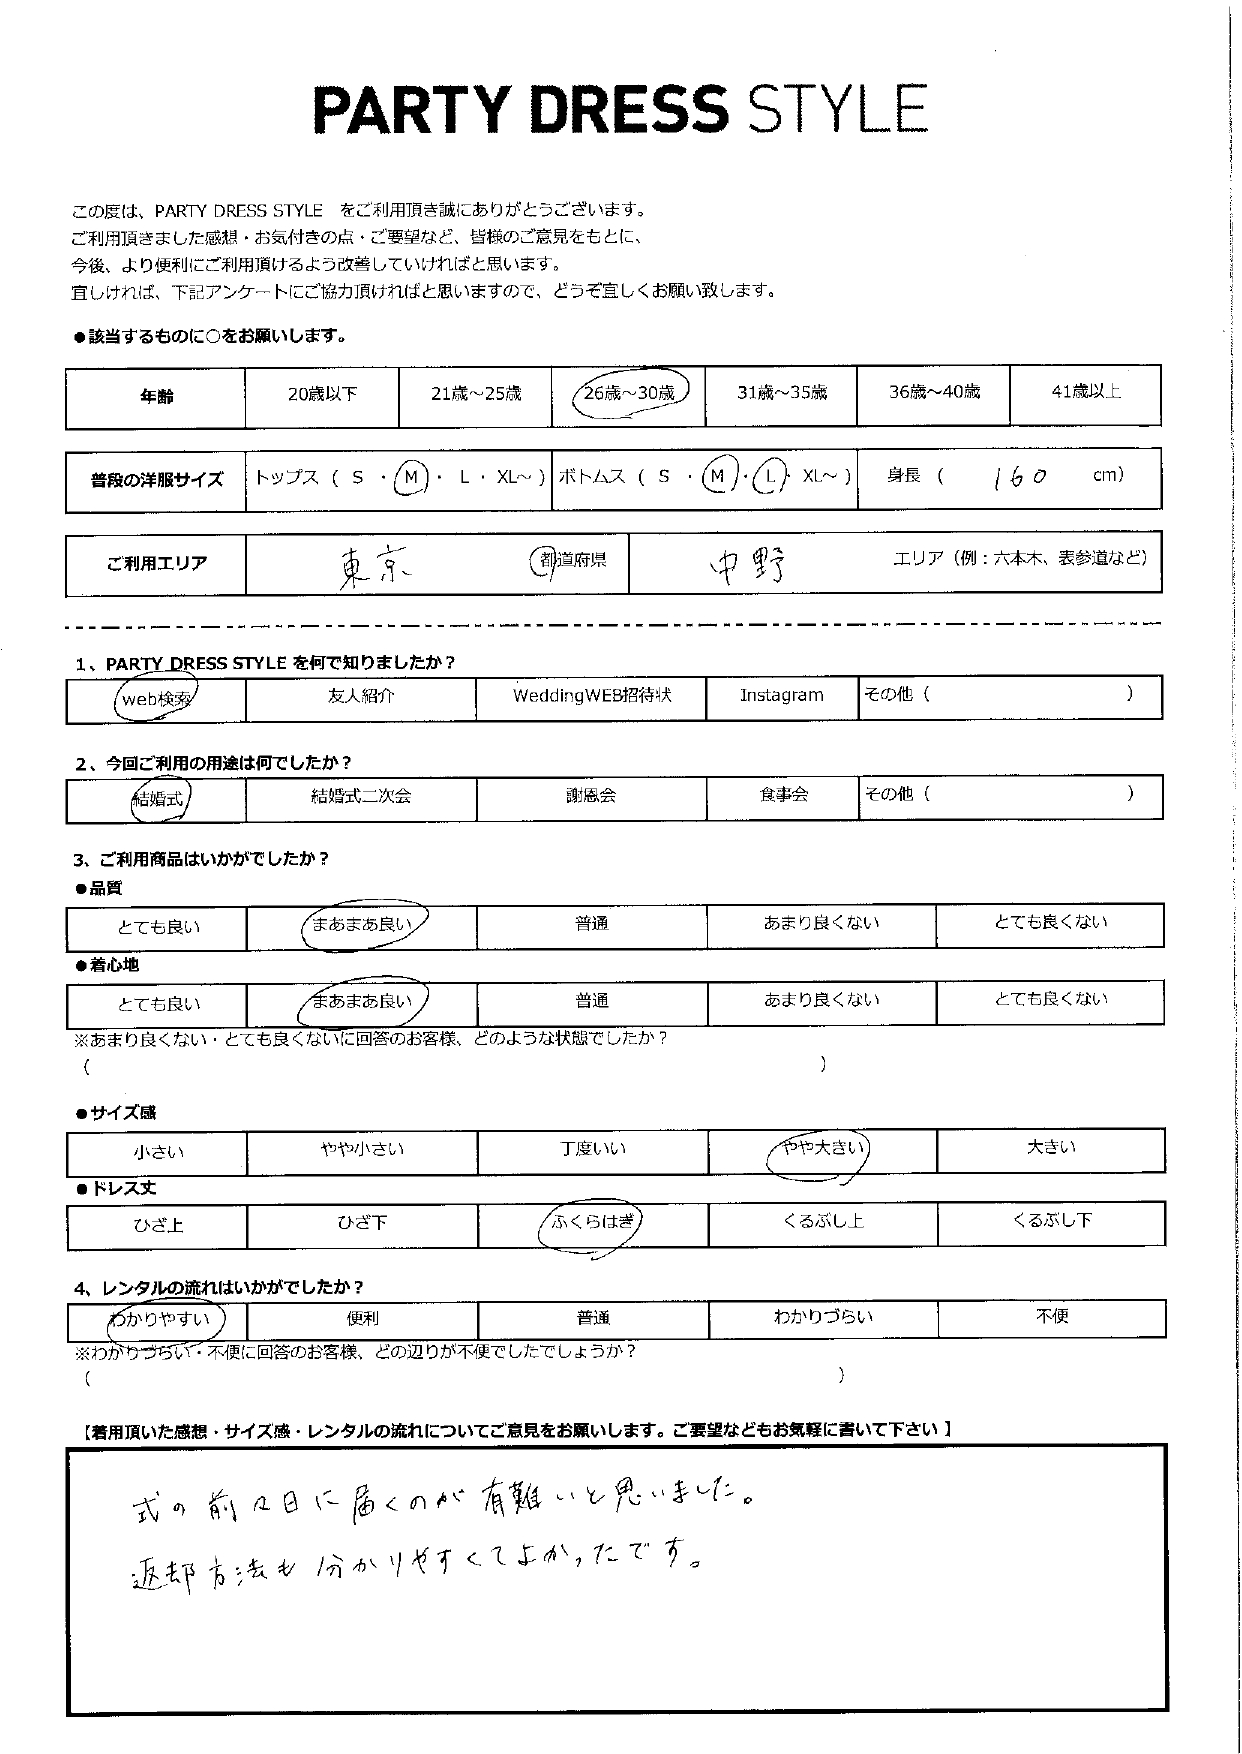 PARTY DRESS STYLE
この度は、PARTY DRESS STYLE をご利用頂き誠にありがとうございます。
ご利用頂きました感想・お気付きの点・ご要望など、皆様のご意見をもとに、
今後、より便利にご利用頂けるよう改善していければと思います。
宜しければ、下記アンケートにご協力頂ければと思いますので、どうぞ宜しくお願い致します。
●該当するものに○をお願いします。
年齢 20歳以下 21歳～25歳 26歳～30歳 31歳～35歳 36歳～40歳 41歳以上
普段の洋服サイズ トップス（ S ・ M ・ L ・ XL～ ） ボトムス（ S ・ M ・ L ・ XL～ ） 身長（ 160 cm）
ご利用エリア 東京 都道府県 中野 エリア（例：六本木、表参道など）
1、PARTY DRESS STYLE を何で知りましたか？
web検索 友人紹介 WeddingWEB招待状 Instagram その他（ ）
2、今回ご利用の用途は何でしたか？
結婚式 結婚式二次会 謝恩会 食事会 その他（ ）
3、ご利用商品はいかがでしたか？
●品質
とても良い まあまあ良い 普通 あまり良くない とても良くない
●着心地
とても良い まあまあ良い 普通 あまり良くない とても良くない
※あまり良くない・とても良くないに回答のお客様、どのような状態でしたか？
（ ）
●サイズ感
小さい やや小さい 丁度いい やや大きい 大きい
●ドレス丈
ひざ上 ひざ下 ふくらはぎ くるぶし上 くるぶし下
4、レンタルの流れはいかがでしたか？
わかりやすい 便利 普通 わかりづらい 不便
※わかりづらい・不便に回答のお客様、どの辺りが不便でしたでしょうか？
（ ）
【着用頂いた感想・サイズ感・レンタルの流れについてご意見をお願いします。ご要望などもお気軽に書いて下さい 】
式の前々日に届くのが有難いと思いました。
返却方法も分かりやすくてよかったです。